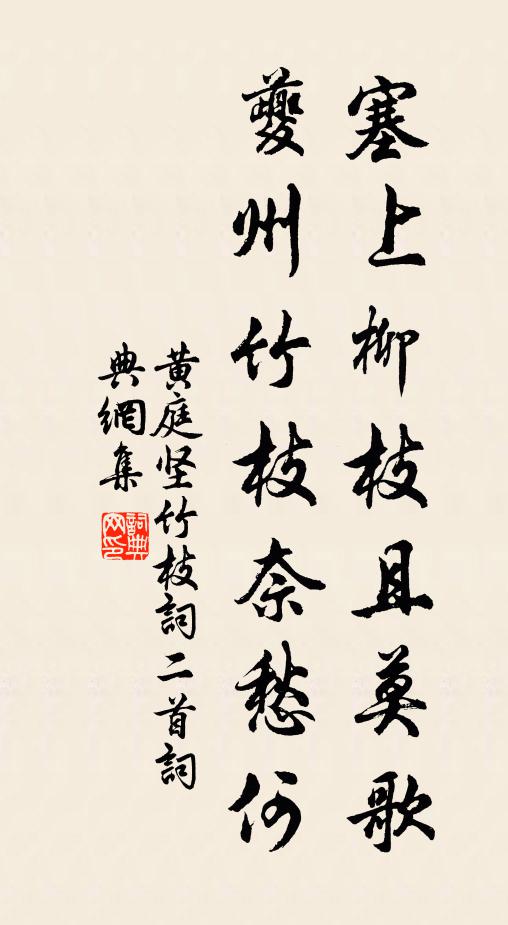 塞上柳枝且莫歌
夔州竹枝奈愁何
黄庭坚竹枝詞二首詞
典網集
詞典網印